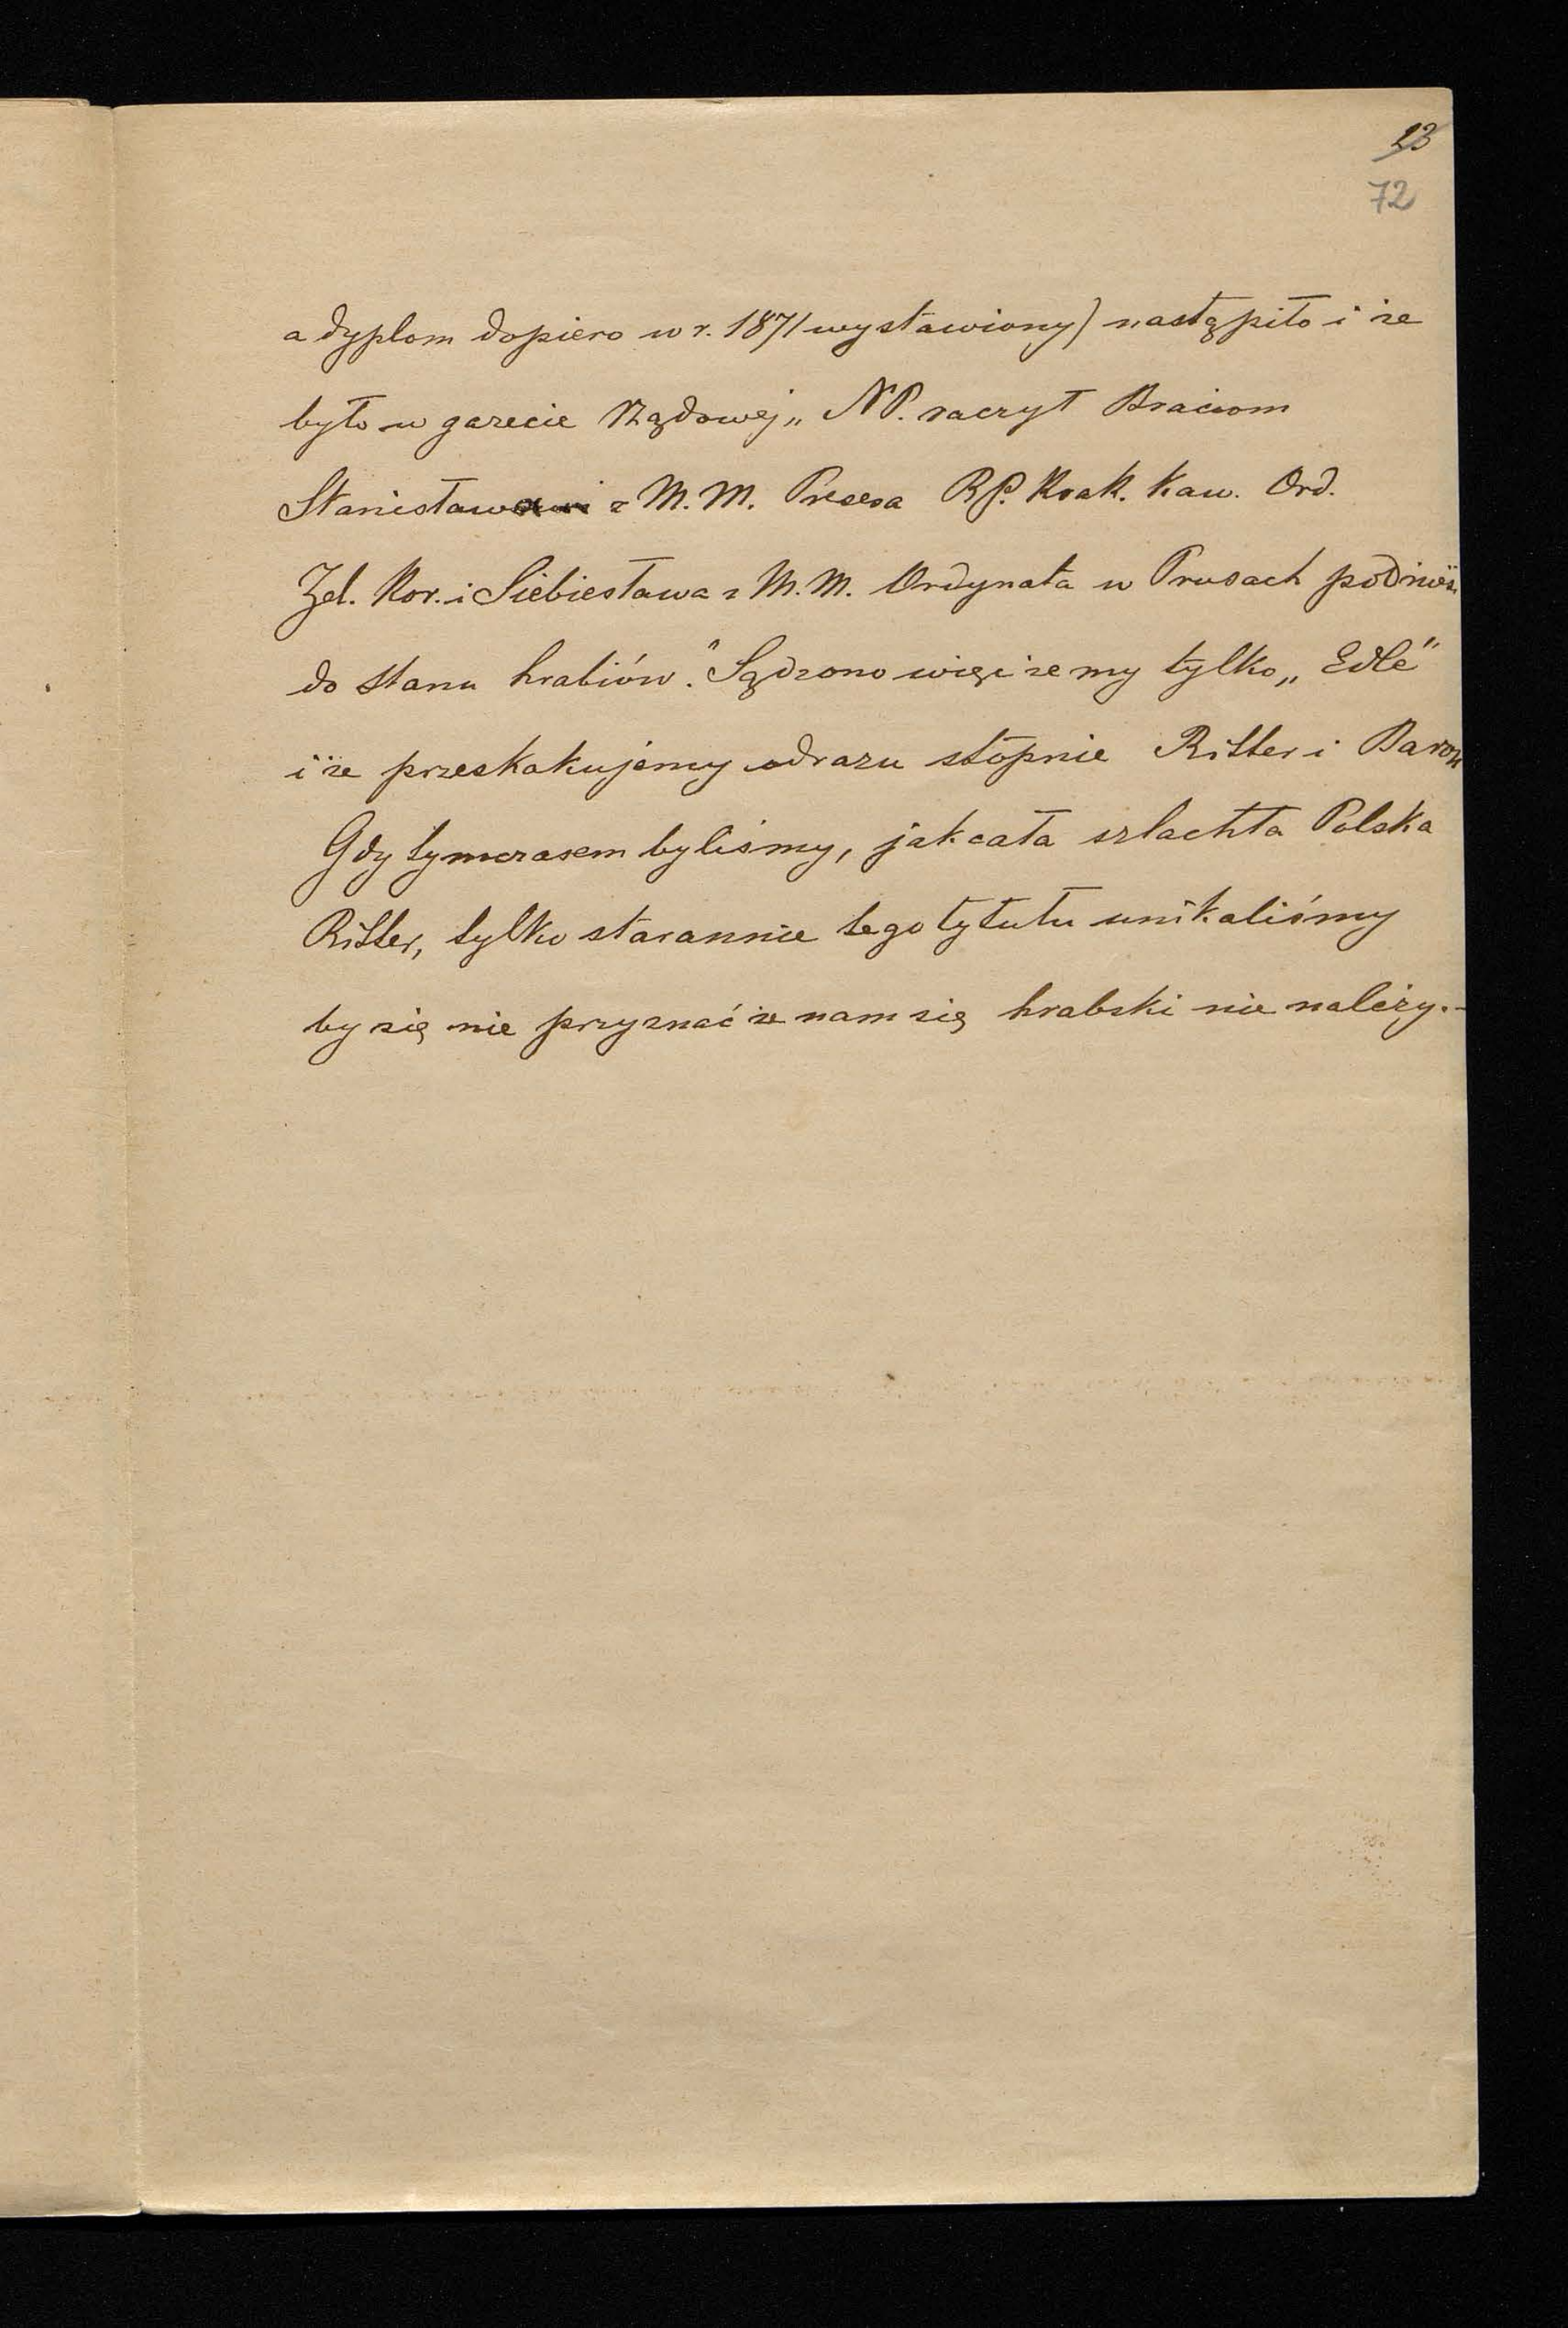 23
72
a dyplom dopiero w r. 1871 wystawiony) nastąpiło i że
było w gazecie Rządowej „NP. raczył Braciom
Stanisława z M. M. Prezesa RP. Krak. Kaw. Ord.
Żel. Kor. i Siebiesława z M. M. Ordynata w Prusach podnieść
do stanu hrabiów." Sądzono więc że my tylko „Edle"
i że przeskakujemy odrazu stopnie Ritter i Baron
Gdy tymczasem byliśmy, jak cała szlachta Polska
Ritter, tylko starannie tego tytułu unikaliśmy
by się nie przyznać że nam się hrabski nie należy.–